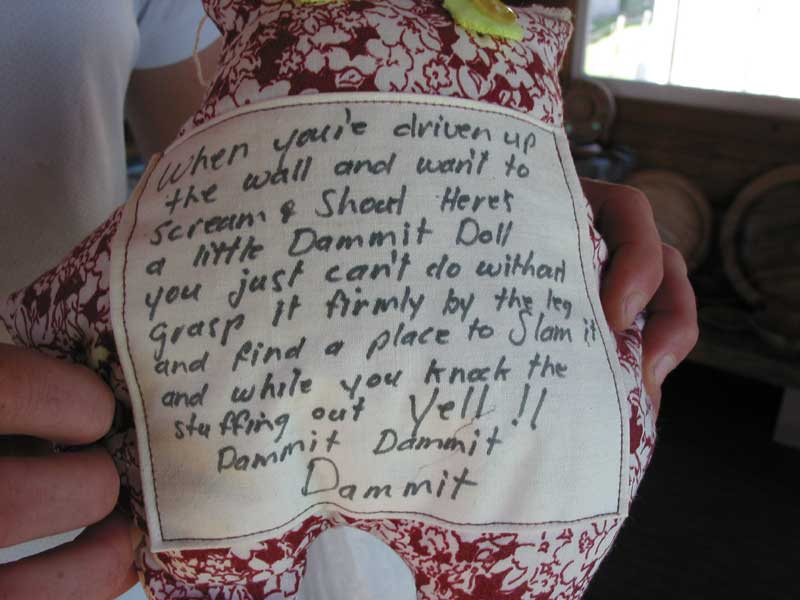 When you're driven up
the wall and want to
scream & Shout Here's
a little Dammit Doll
you just can't do without
grasp it firmly by the leg
and find a place to Slam it
and while you knock the
stuffing out Yell !!
Dammit Dammit
Dammit